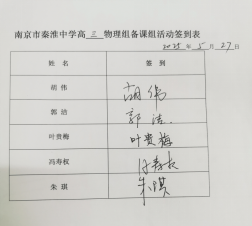 南京市秦淮中学高三物理组备课组活动签到表
2025年5月27日
姓名 签到
胡伟 胡伟
郭洁 郭洁
叶贵梅 叶贵梅
冯寿权 冯寿权
朱琪 朱琪